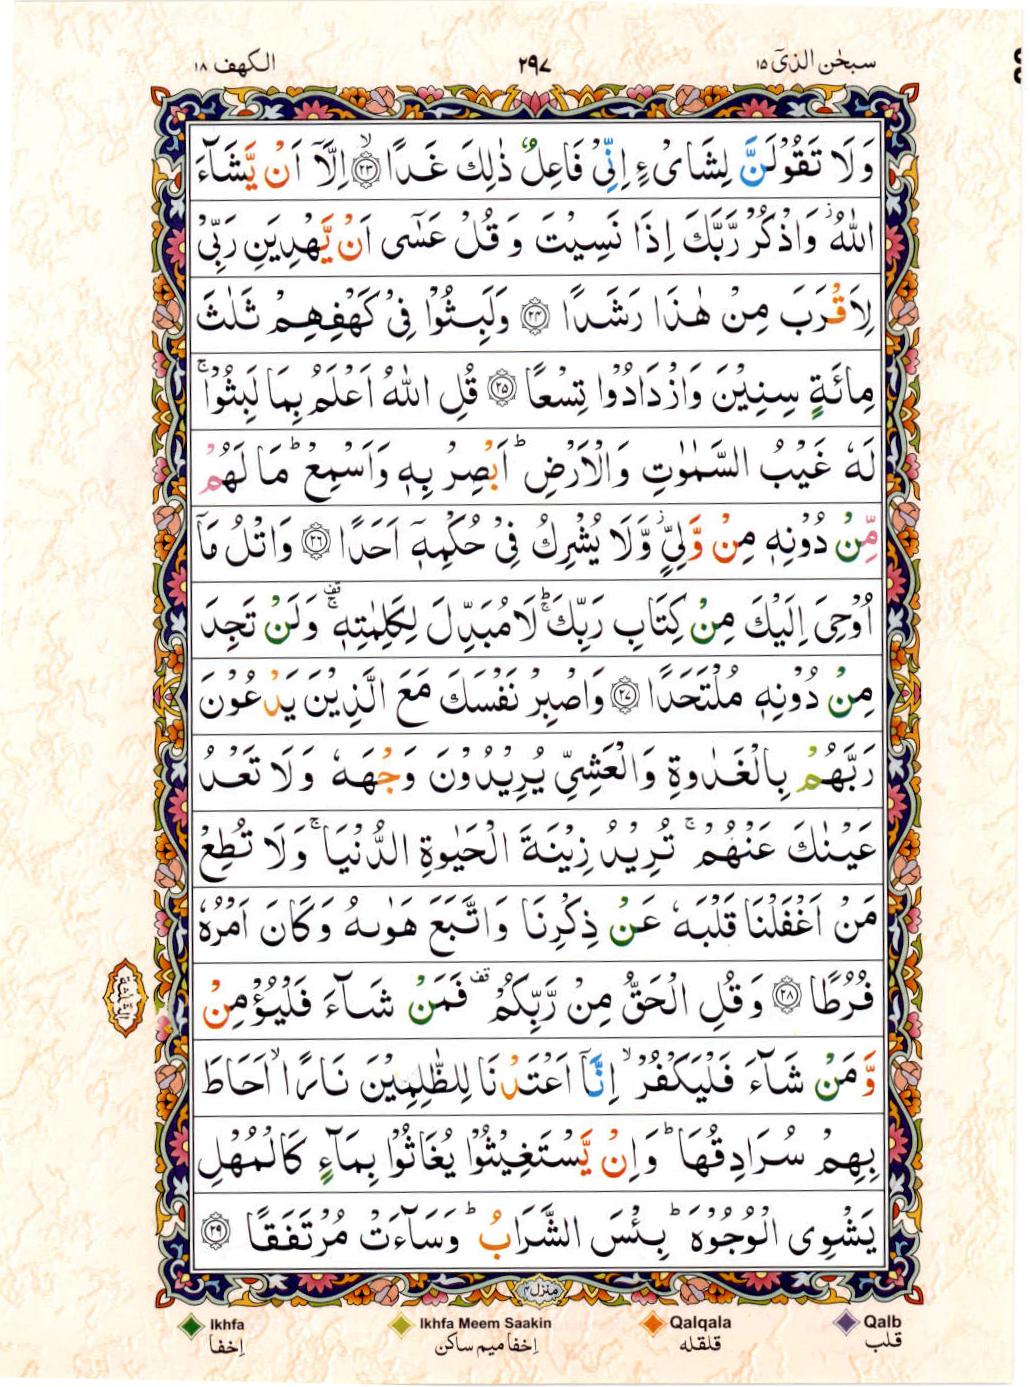 سبحٰن الذیٓ ۱۵
۲۹۷
الكهف ۱۸
وَلَا تَقُوْلَنَّ لِشَایْءٍ اِنِّیْ فَاعِلٌ ذٰلِكَ غَدًا ۙ﴿۲۳﴾ اِلَّاۤ اَنْ یَّشَآءَ
اللّٰهُ ؗ وَاذْكُرْ رَّبَّكَ اِذَا نَسِیْتَ وَ قُلْ عَسٰۤی اَنْ یَّهْدِیَنِ رَبِّیْ
لِاَقْرَبَ مِنْ هٰذَا رَشَدًا ﴿۲۴﴾ وَلَبِثُوْا فِیْ كَهْفِهِمْ ثَلٰثَ
مِائَةٍ سِنِیْنَ وَازْدَادُوْا تِسْعًا ﴿۲۵﴾ قُلِ اللّٰهُ اَعْلَمُ بِمَا لَبِثُوْا ۚ
لَهٗ غَیْبُ السَّمٰوٰتِ وَالْاَرْضِ ؕ اَبْصِرْ بِهٖ وَاَسْمِعْ ؕ مَا لَهُمْ
مِّنْ دُوْنِهٖ مِنْ وَّلِیٍّ ؗ وَّلَا یُشْرِكُ فِیْ حُكْمِهٖۤ اَحَدًا ﴿۲۶﴾ وَاتْلُ مَاۤ
اُوْحِیَ اِلَیْكَ مِنْ كِتَابِ رَبِّكَ ؕۚ لَا مُبَدِّلَ لِكَلِمٰتِهٖ ۚ۫ وَلَنْ تَجِدَ
مِنْ دُوْنِهٖ مُلْتَحَدًا ﴿۲۷﴾ وَاصْبِرْ نَفْسَكَ مَعَ الَّذِیْنَ یَدْعُوْنَ
رَبَّهُمْ بِالْغَدٰوةِ وَالْعَشِیِّ یُرِیْدُوْنَ وَجْهَهٗ وَلَا تَعْدُ
عَیْنٰكَ عَنْهُمْ ۚ تُرِیْدُ زِیْنَةَ الْحَیٰوةِ الدُّنْیَا ۚ وَلَا تُطِعْ
مَنْ اَغْفَلْنَا قَلْبَهٗ عَنْ ذِكْرِنَا وَاتَّبَعَ هَوٰىهُ وَكَانَ اَمْرُهٗ
فُرُطًا ﴿۲۸﴾ وَقُلِ الْحَقُّ مِنْ رَّبِّكُمْ ۫ فَمَنْ شَآءَ فَلْیُؤْمِنْ
وَّمَنْ شَآءَ فَلْیَكْفُرْ ۙ اِنَّاۤ اَعْتَدْنَا لِلظّٰلِمِیْنَ نَارًا ۙ اَحَاطَ
بِهِمْ سُرَادِقُهَا ؕ وَاِنْ یَّسْتَغِیْثُوْا یُغَاثُوْا بِمَآءٍ كَالْمُهْلِ
یَشْوِی الْوُجُوْهَ ؕ بِئْسَ الشَّرَابُ ؕ وَسَآءَتْ مُرْتَفَقًا ﴿۲۹﴾
الثلٰثة
منزل ۴
Ikhfa
إخفا
Ikhfa Meem Saakin
إخفا میم ساكن
Qalqala
قلقله
Qalb
قلب